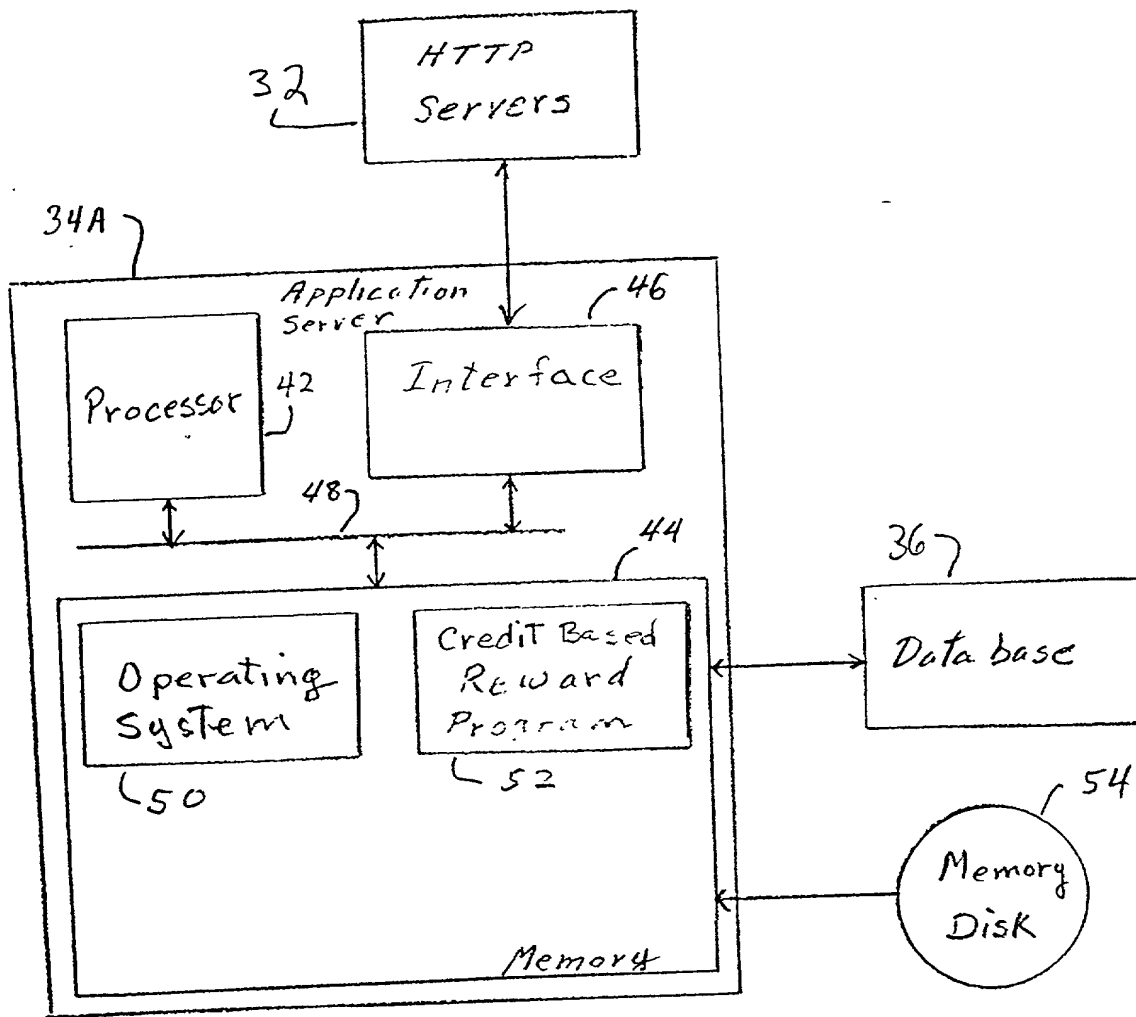 HTTP
Servers
32
34A
Application
Server
46
Processor
42
Interface
48
44
36
Operating
System
50
Credit Based
Reward
Program
52
Database
54
Memory
Disk
Memory